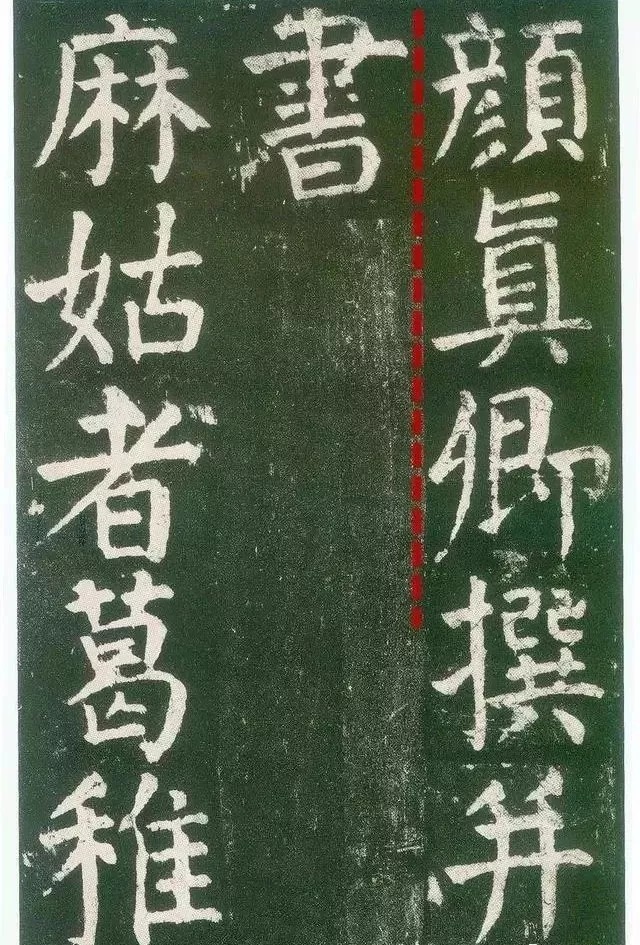 顔真卿撰并
書
麻姑者葛稚